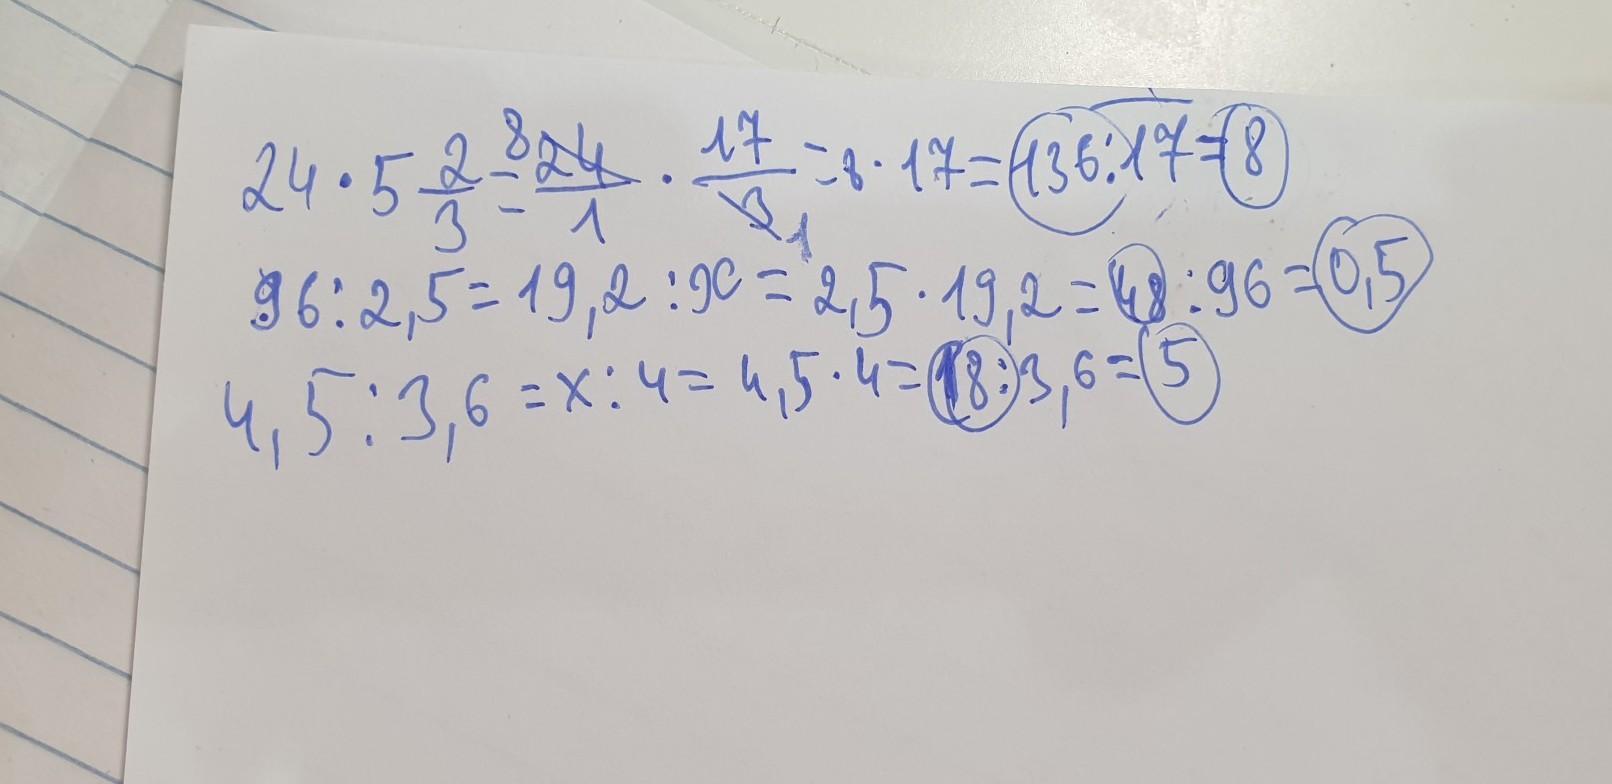 24·5 2/3 = 8 24/1 · 17/3 1 = 8·17 = 136:17 = 8
96:2,5 = 19,2:x = 2,5·19,2 = 48:96 = 0,5
4,5:3,6 = x:4 = 4,5·4 = 18:3,6 = 5